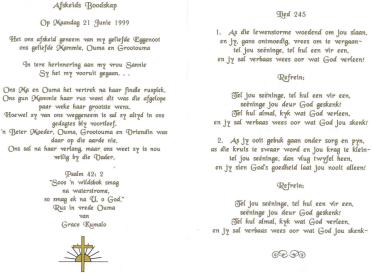 Afskeids Boodskap
Op Maandag 21 Junie 1999
Het ons afskeid geneem van my geliefde Eggenoot
ons geliefde Mammie, Ouma en Grootouma
In tere herinnering aan my vrou Sannie
Sy het my vooruit gegaan. . .
Ons Ma en Ouma het vertrek na haar finale rusplek.
Ons gun Mammie haar rus want dit was die afgelope
paar weke haar grootste wens.
Hoewel sy van ons weggeneem is sal sy altyd in ons
gedagtes bly voortleef.
'n Beter Moeder, Ouma, Grootouma en Vriendin was
daar op die aarde nie.
Ons sal na haar verlang, maar ons weet sy is nou
veilig by die Vader.
Psalm 42: 2
"Soos 'n wildsbok smag
na waterstrome,
so smag ek na U, o God."
Rus in vrede Ouma
van
Grace Kumalo
Lied 245
1. As die lewenstorme woedend om jou slaan,
en jy, gans ontmoedig, wees om te vergaan-
tel jou seëninge, tel hul een vir een,
en jy sal verbaas wees oor wat God jou leen.
Refrein:
Tel jou seëninge, tel hul een vir een,
seëninge jou deur God geskenk!
Tel hul almal, kyk wat God verleen,
en jy sal verbaas wees oor wat God jou skenk!
2. As jy ooit gebuk gaan onder sorg en pyn,
as die kruis te swaar word en jou krag te klein-
tel jou seëninge, dan vlug twyfel heen,
en jy sien God's goedheid laat jou nooit alleen!
Refrein:
Tel jou seëninge, tel hul een vir een,
seëninge jou deur God geskenk!
Tel hul almal, kyk wat God verleen,
en jy sal verbaas wees oor wat God jou skenk-